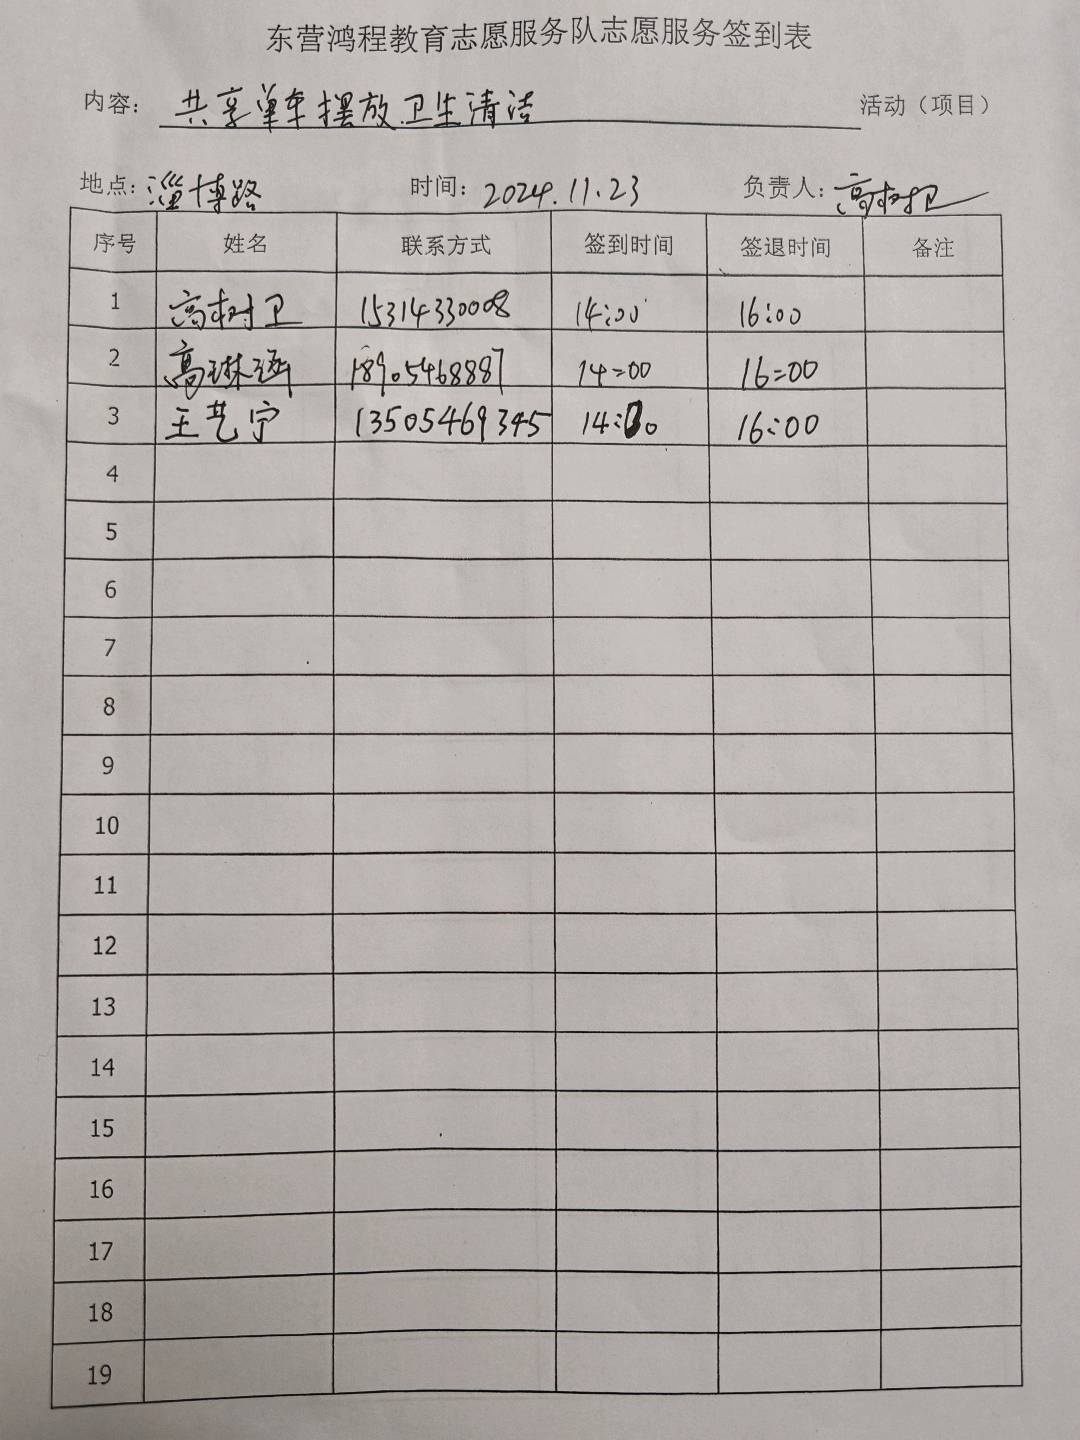 东营鸿程教育志愿服务队志愿服务签到表
内容： 共享单车摆放卫生清洁 活动（项目）
地点：淄博路 时间：2024.11.23 负责人：高树卫
序号 姓名 联系方式 签到时间 签退时间 备注
1 高树卫 15314330008 14:00 16:00
2 高琳涵 18905468887 14=00 16=00
3 王艺宁 13505469345 14:00 16:00
4
5
6
7
8
9
10
11
12
13
14
15
16
17
18
19